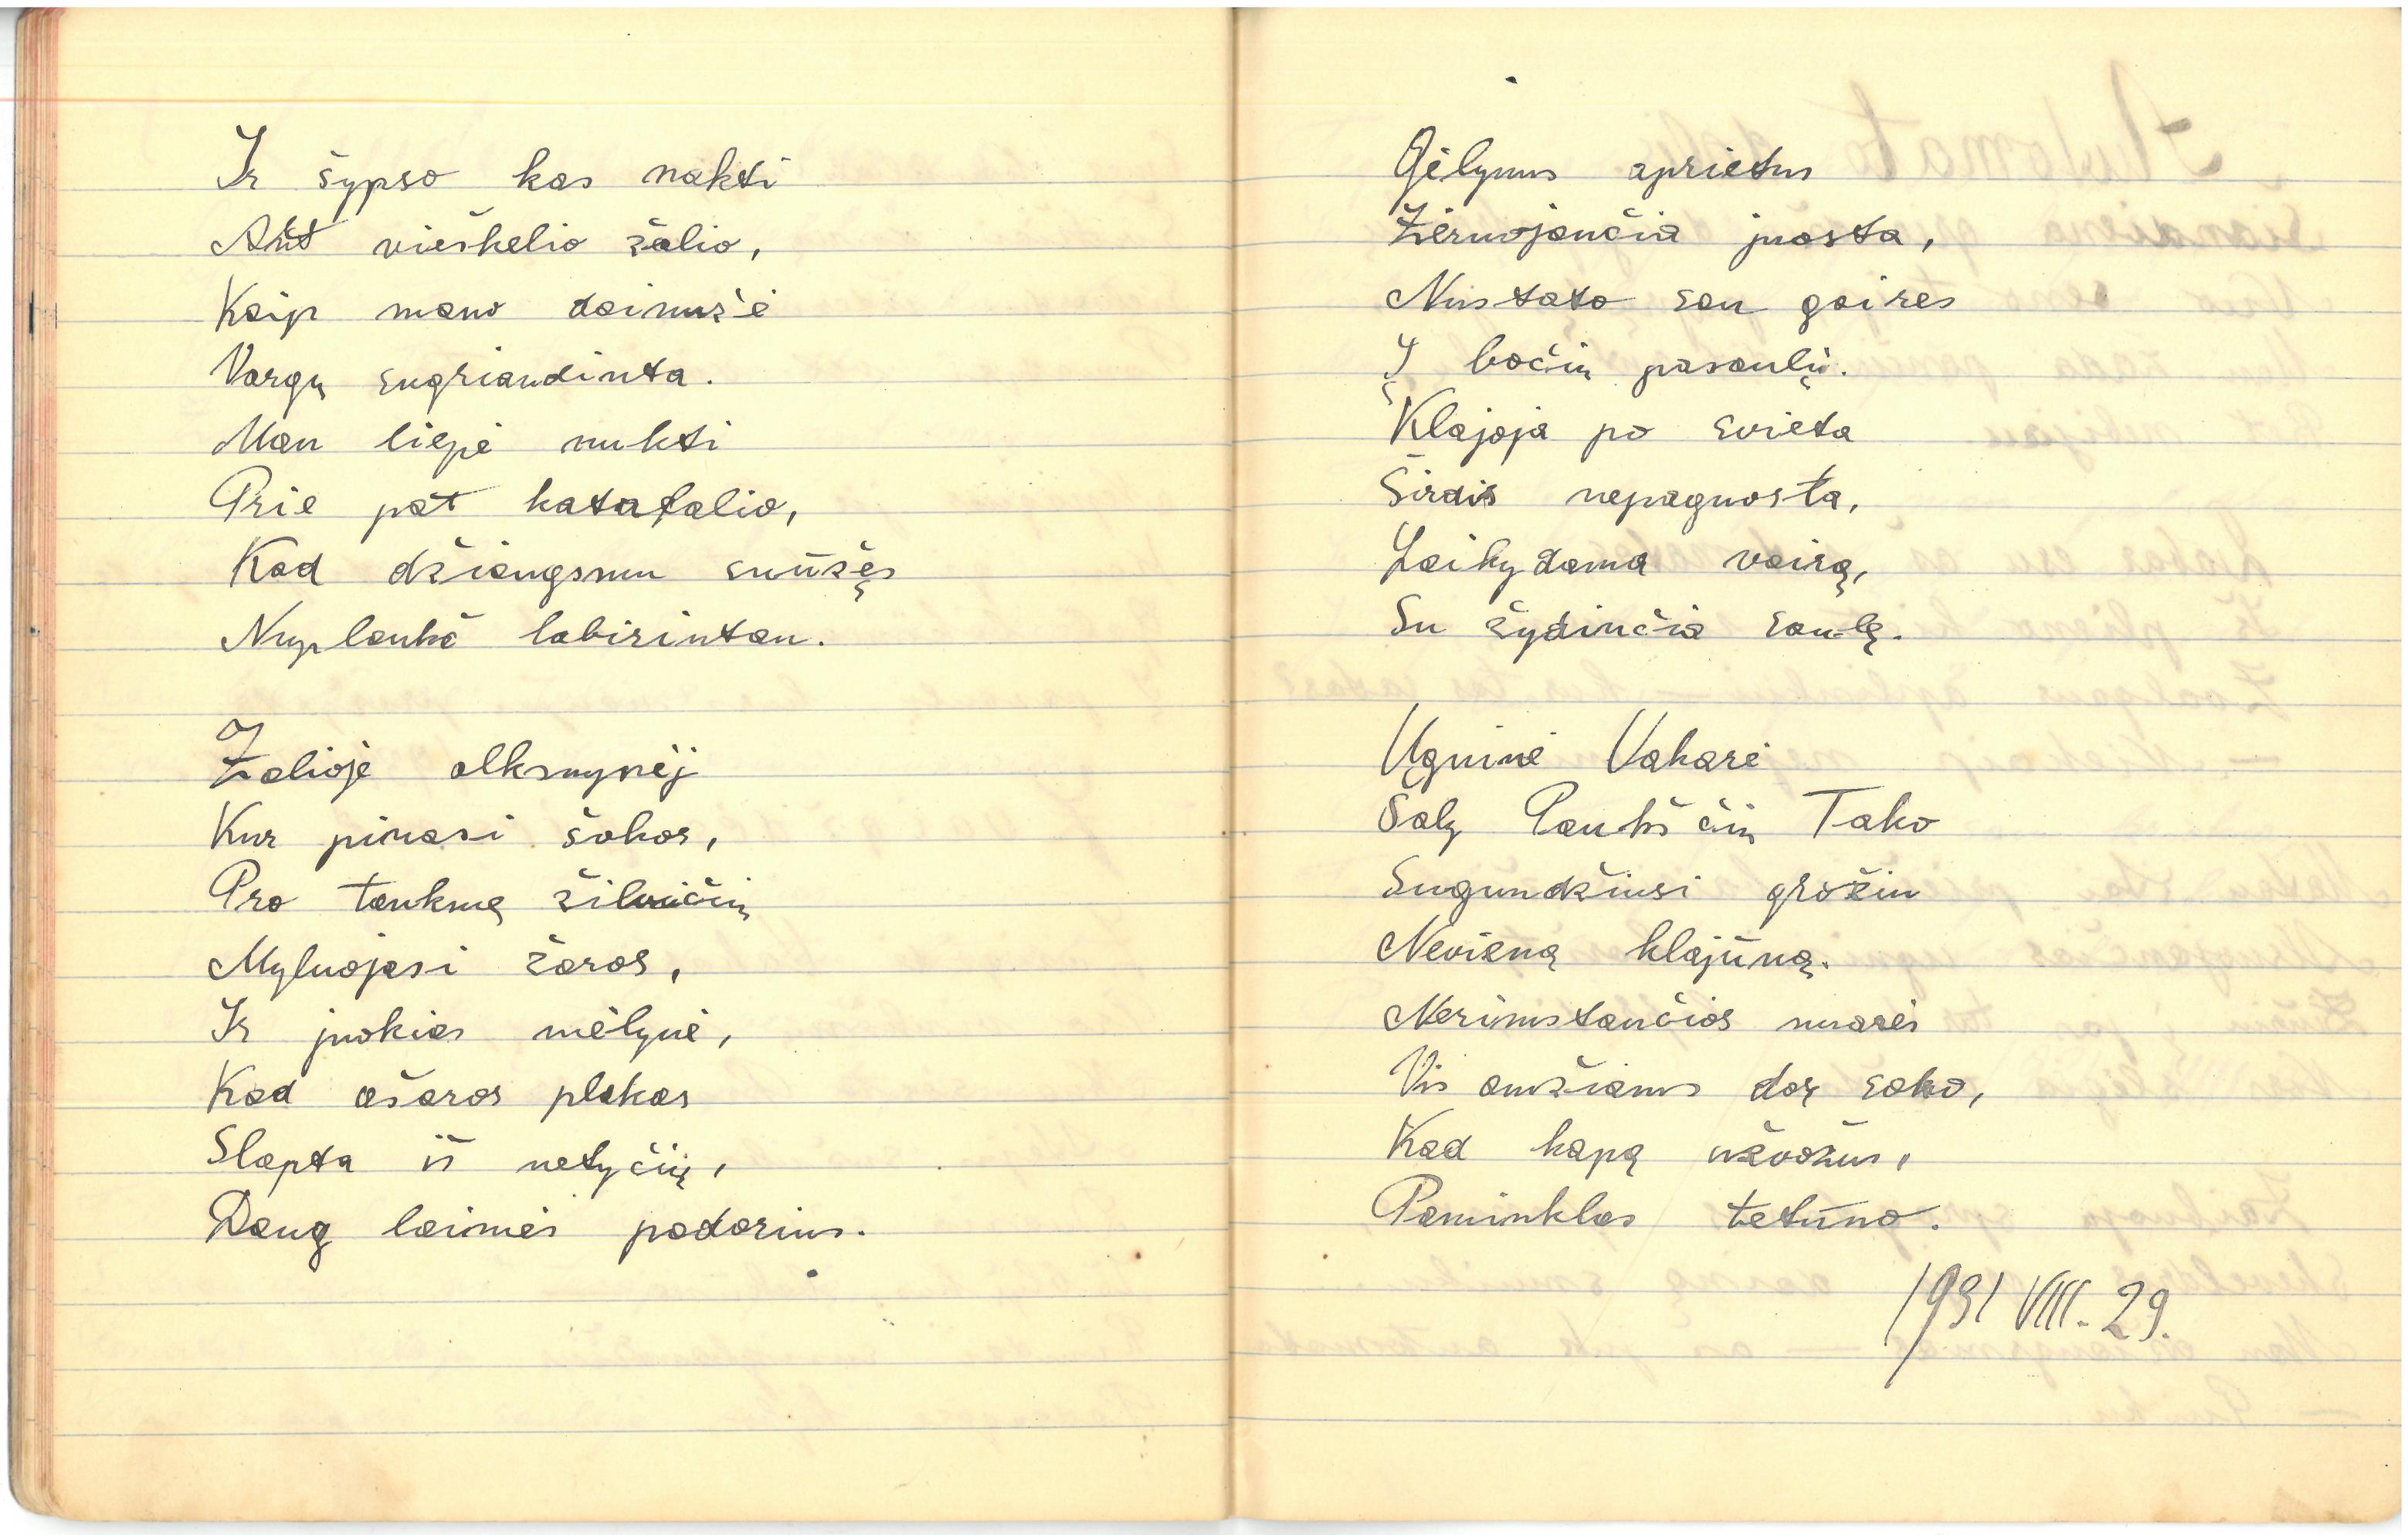 Ir šypso kas nakti
Ant vieškelio žalio,
Kaip mano dainužė
Vargų sugriaudinta.
Man liepė nukti
Prie pat katafalio,
Kad džiaugsmu suūžęs
Nuplaukč labirintan.
Žalioje alksnynėj
Kur pinasi šakos,
Pro tankmę žilvičių
Myluojasi žaros,
Ir juokias mėlynė,
Kad ašaros plakas
Slapta iš netyčių,
Daug laimės padarius.
Gėlynus aprietus
Žėruojančia juosta,
Nustato sau gaires
Į bočių pasaulį.
Klajoja po svieta
Širdis nepaguosta,
Laikydama vairą,
Su žydinčia saulę.
Ugninė Vakarė
Šaly Paukščių Tako
Sugundžiusi grožiu
Nevieną klajūną.
Nerimstančios marės
Vis amžiams dar sako,
Kad kapą užvožus,
Paminklas tetūno.
1931 VIII. 29.